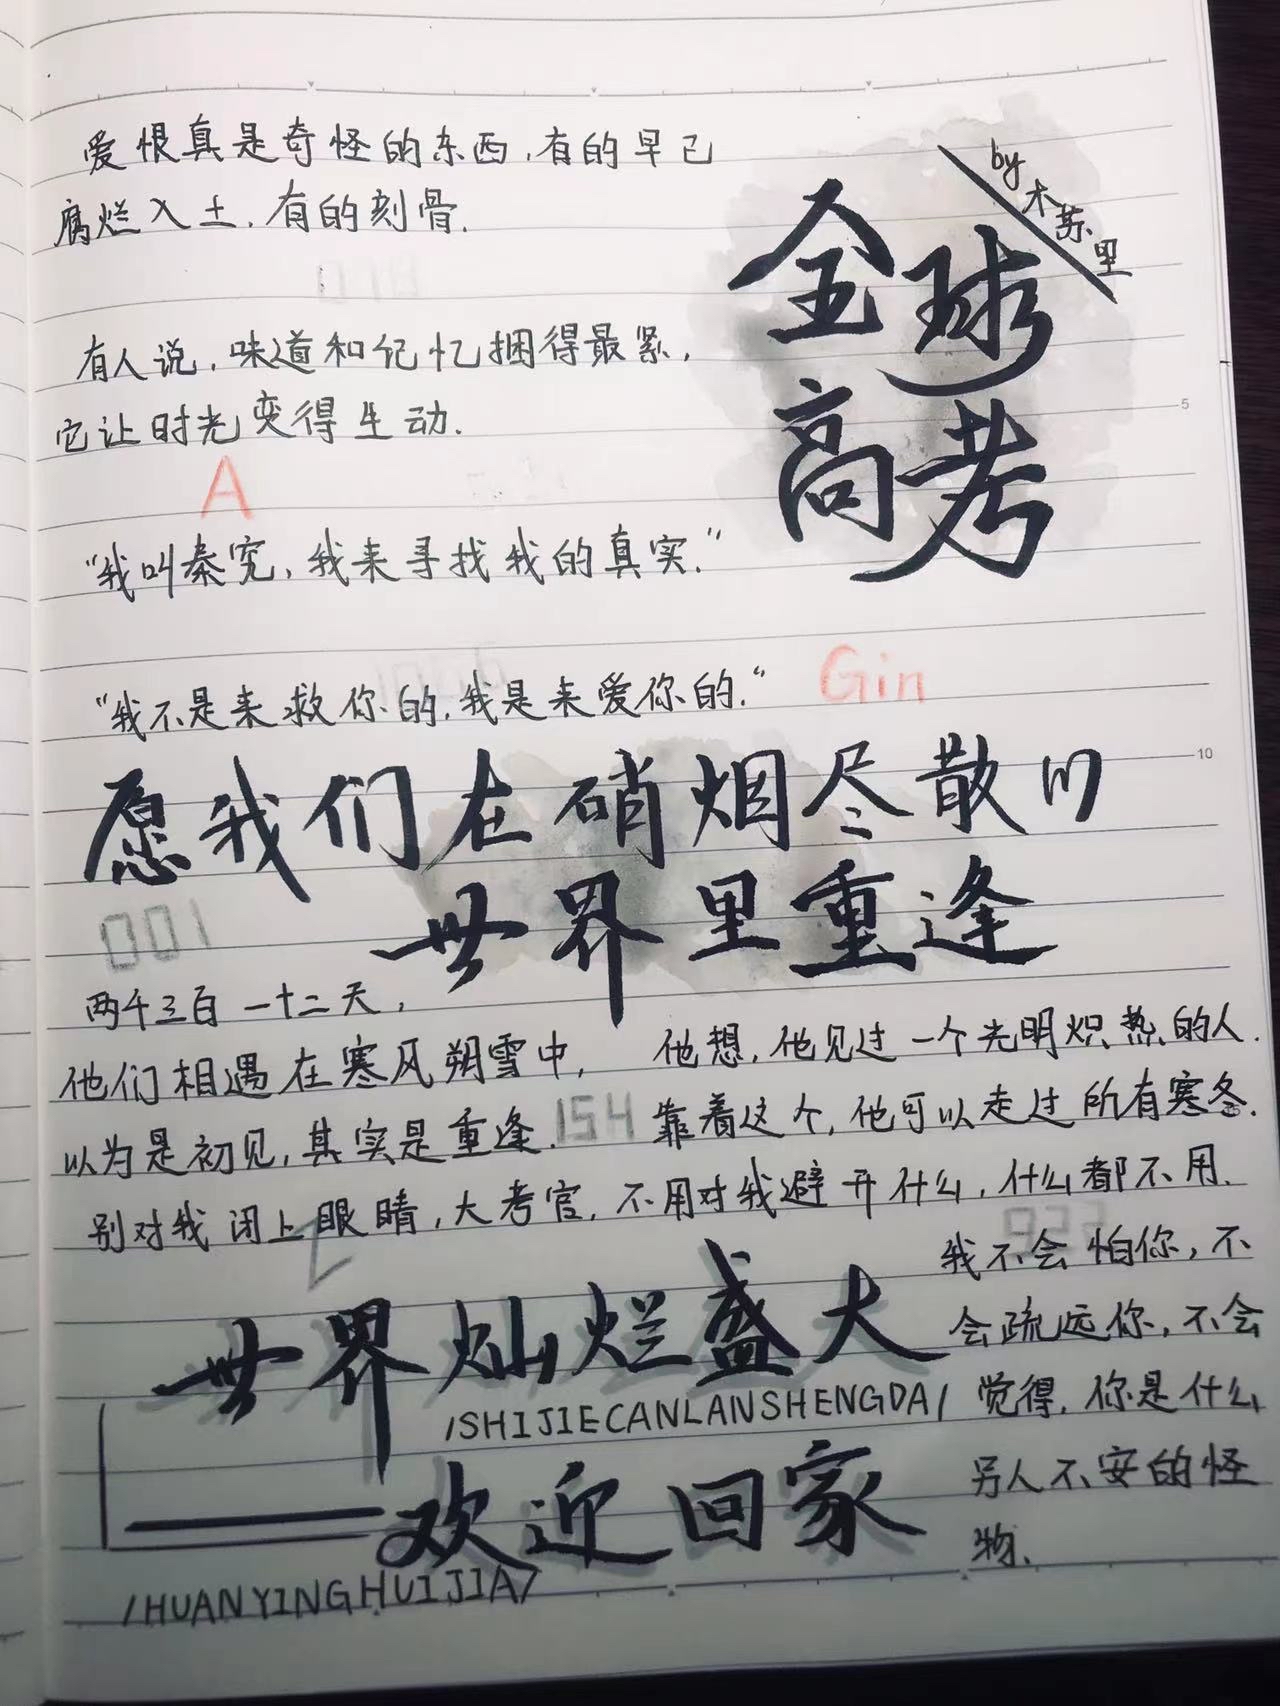 爱恨真是奇怪的东西,有的早已
腐烂入土,有的刻骨.
by木苏里
全球
高考
010
有人说,味道和记忆捆得最紧,
它让时光变得生动.
5
A
“我叫秦究,我来寻找我的真实.”
“我不是来救你的,我是来爱你的.”
Gin
10
愿我们在硝烟尽散的
世界里重逢
001
两千三百一十二天,
他们相遇在寒风朔雪中,
以为是初见,其实是重逢.
154
他想,他见过一个光明炽热的人.
靠着这个,他可以走过所有寒冬.
别对我闭上眼睛,大考官,不用对我避开什么,什么都不用.
922
我不会怕你,不
会疏远你,不会
觉得,你是什么
另人不安的怪
物.
世界灿烂盛大
/SHIJIECANLANSHENGDA/
欢迎回家
/HUANYINGHUIJIA/